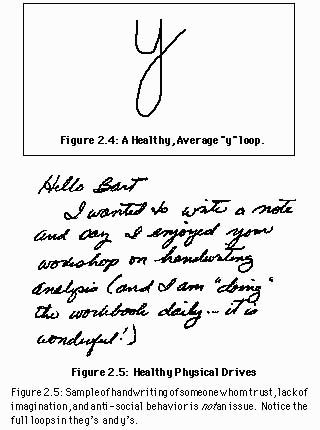 y
Figure 2.4: A Healthy, Average "y" loop.
Hello Bart
I wanted to write a note
and say I enjoyed your
workshop on handwriting
analysis (and I am "doing"
the workbook daily... it is
wonderful!)
Figure 2.5: Healthy Physical Drives
Figure 2.5: Sample of handwriting of someone whom trust, lack of
imagination, and anti-social behavior is not an issue. Notice the
full loops in the g's and y's.